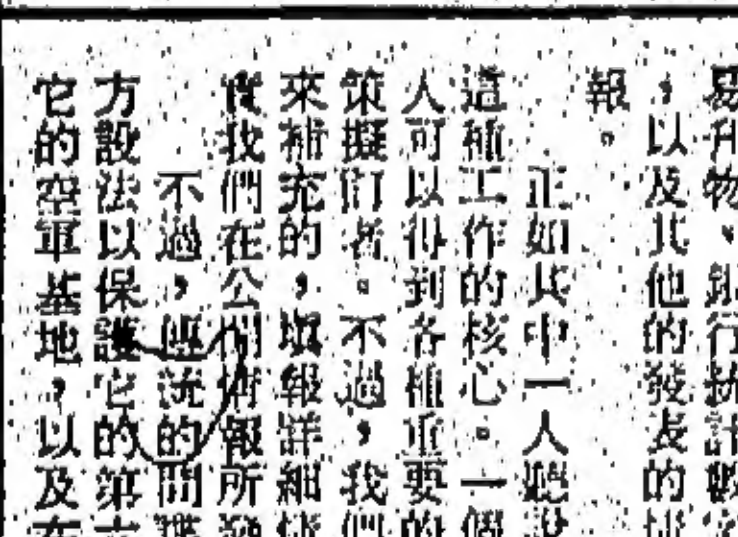 易刊物、銀行統計數字
，以及其他的發表的情
報。
正如其中一人聽說
這種工作的核心。一個
人可以得到各種重要的
策擬訂者。不過，我們
來補充的，填報詳細情
我們在公開情報所
不過，傳統的間諜
方設法以保護它的第
它的空軍基地，以及在